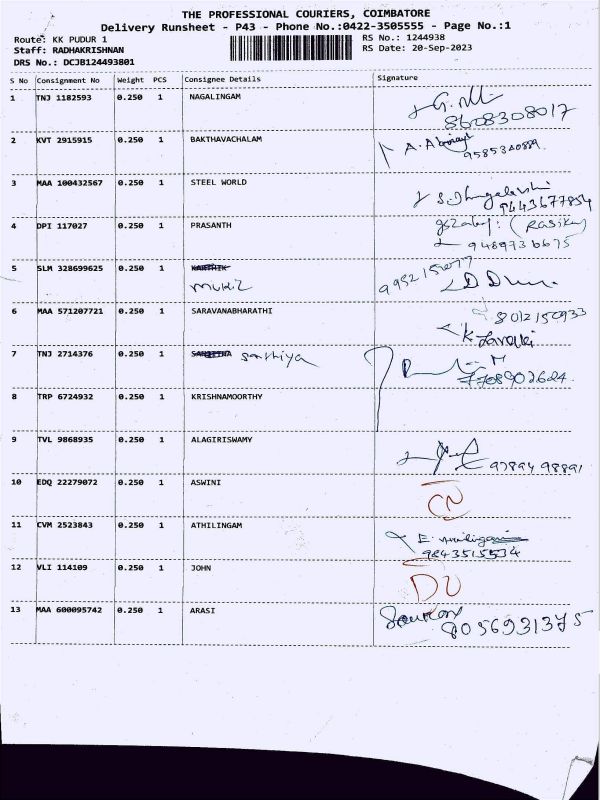 THE PROFESSIONAL COURIERS, COIMBATORE
Delivery Runsheet - P43 - Phone No.:0422-3505555 - Page No.:1
Route: KK PUDUR 1
RS No.: 1244938
Staff: RADHAKRISHNAN
RS Date: 20-Sep-2023
DRS No.: DCJB124493801
S No Consignment No Weight PCS Consignee Details Signature
1 TNJ 1182593 0.250 1 NAGALINGAM
8608308017
2 KVT 2915915 0.250 1 BAKTHAVACHALAM A. A
3 MAA 100432567 0.250 1 STEEL WORLD
9443677854
4 DPI 117027 0.250 1 PRASANTH
9489736675
5 SLM 328699625 0.250 1 KARTHIK
Mukil
6 MAA 571207721 0.250 1 SARAVANABHARATHI 8012150933
K
7 TNJ 2714376 0.250 1 santhiya
7708902624
8 TRP 6724932 0.250 1 KRISHNAMOORTHY
9 TVL 9868935 0.250 1 ALAGIRISWAMY
97894 98891
10 EDQ 22279072 0.250 1 ASWINI
CN
11 CVM 2523843 0.250 1 ATHILINGAM E.
9843515534
12 VLI 114109 0.250 1 JOHN
DU
13 MAA 600095742 0.250 1 ARASI
8056931375